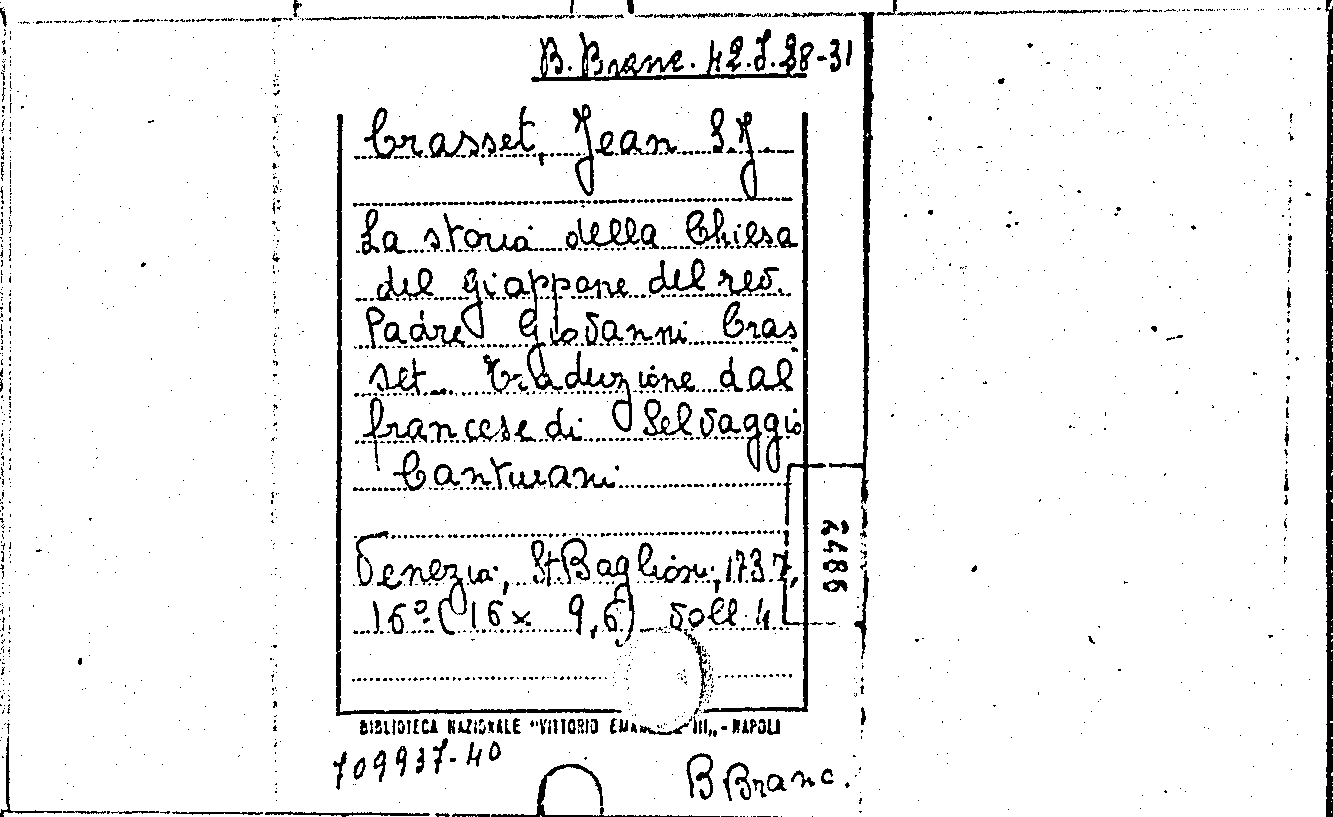 B. Branc. 42.J.28-31
Crasset, Jean S.J.
La storia della Chiesa
del Giappone del rev.
Padre Giovanni Cras
set... Traduzione dal
francese di Selvaggio
Canturani
Venezia, St. Baglioni, 1737,
16° (16 x 9,6) voll 4
2486
BIBLIOTECA NAZIONALE "VITTORIO III" - NAPOLI
709937-40
B Branc.